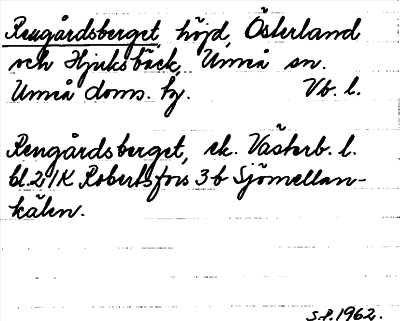 Rengårdsberget, höjd, Österland
och Hjuksbäck, Umeå sn.
Umeå doms. hg. Vb. l.
Rengårdsberget, ek. Västerb. l.
bl. 21K Robertsfors 3b Sjömellan-
kälen.
S.P. 1962.